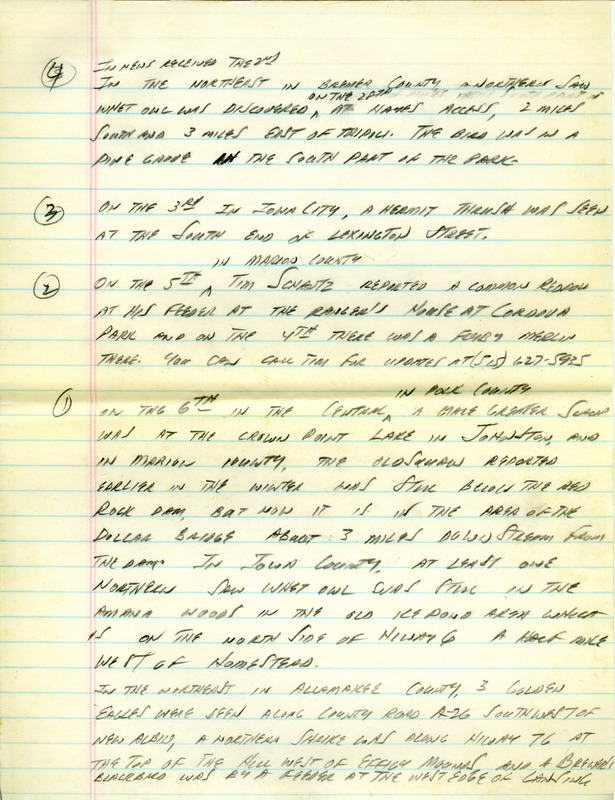 (4) IN NEWS RECEIVED THE 2ND
IN THE NORTHEAST IN BREMER COUNTY A NORTHERN SAW
WHET OWL WAS DISCOVERED ON THE 28TH AT HAMES ACCESS, 2 MILES
SOUTH AND 3 MILES EAST OF TRIPOLI. THE BIRD WAS IN A
PINE GROVE IN THE SOUTH PART OF THE PARK
(3) ON THE 3RD IN IOWA CITY, A HERMIT THRUSH WAS SEEN
AT THE SOUTH END OF LEXINGTON STREET.
(2) ON THE 5TH IN MARION COUNTY TIM SCHANTZ REPORTED A COMMON REDPOLL
AT HIS FEEDER AT THE RANGER'S HOUSE AT CORDOVA
PARK AND ON THE 4TH THERE WAS A MERLIN
THERE. YOU CAN CALL TIM FOR UPDATES AT (515) 627-5935
(1) ON THE 6TH IN THE CENTRAL, IN POLK COUNTY A MALE GREATER SCAUP
WAS AT THE CROWN POINT LAKE IN JOHNSTON, AND
IN MARION COUNTY, THE OLDSQUAW REPORTED
EARLIER IN THE WINTER WAS STILL BELOW THE RED
ROCK DAM, BUT NOW IT IS IN THE AREA OF THE
DOLLAR BRIDGE ABOUT 3 MILES DOWNSTREAM FROM
THE DAM. IN IOWA COUNTY, AT LEAST ONE
NORTHERN SAW WHET OWL WAS STILL IN THE
AMANA WOODS IN THE OLD ICE POND AREA WHICH
IS ON THE NORTH SIDE OF HIWAY 6 A HALF MILE
WEST OF HOMESTEAD.
IN THE NORTHEAST IN ALLAMAKEE COUNTY, 3 GOLDEN
EAGLES WERE SEEN ALONG COUNTY ROAD A-26 SOUTHWEST OF
NEW ALBIN, A NORTHERN SHRIKE WAS ALONG HIWAY 76 AT
THE TOP OF THE HILL WEST OF EFFIGY MOUNDS AND A BREWER'S
BLACKBIRD WAS BY A FEEDER AT THE WEST EDGE OF LANSING